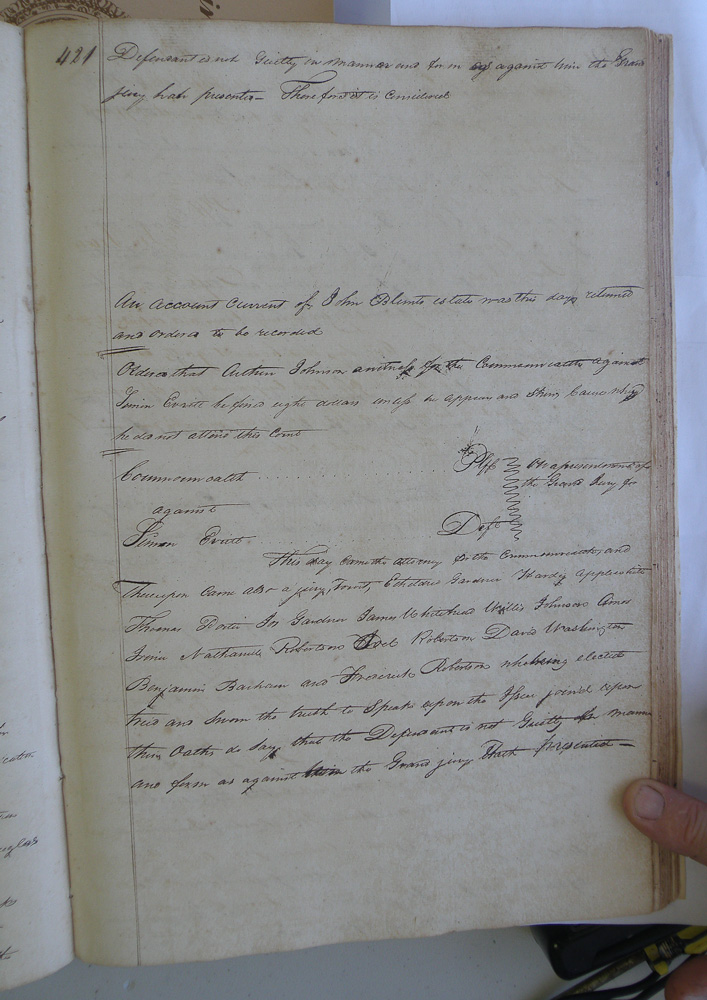 421
Defendant is not Guilty in manner and form as against him the Grand
jury hath presented— Therefore it is Considered
An account current of John Blunts estate was this day returned
and ordered to be recorded
Ordered that Arthur Johnson a witness for the Commonwealth against
Simon Everett be fined eight dollars unless he appear and shew Cause why
he did not attend this Court
Commonwealth Plff On a presentment of
the Grand Jury for
against
Simon Everett Deft
This day came the attorney for the Commonwealth and
Thereupon came also a jury, towit, Etheldred Gardner Hardy Applewhite
Thomas Porter Jos Gardner James Whitehead Willis Johnson Amos
Irvin Nathaniel Robertson Joel Robertson David Washington
Benjamin Barham and Frederick Robertson who being elected
tried and sworn the truth to speak upon the Issue joined upon
their Oaths do say, that the Defendant is not Guilty in manner
and form as against him the Grand jury hath presented—